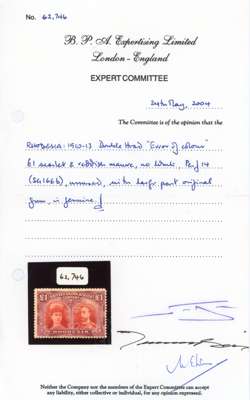 No. 62,746
B. P. A. Expertising Limited
London - England
EXPERT COMMITTEE
24th May, 2004
The Committee is of the opinion that the
RHODESIA: 1910-13 Double Head "Error of colour"
£1 scarlet & reddish mauve, no Perf 14
(SG166b), unused, with large part original
gum, is genuine.
62,746
£1 £1
RHODESIA
Neither the Company nor the members of the Expert Committee can accept
any liability, either collective or individual, for any opinion expressed.